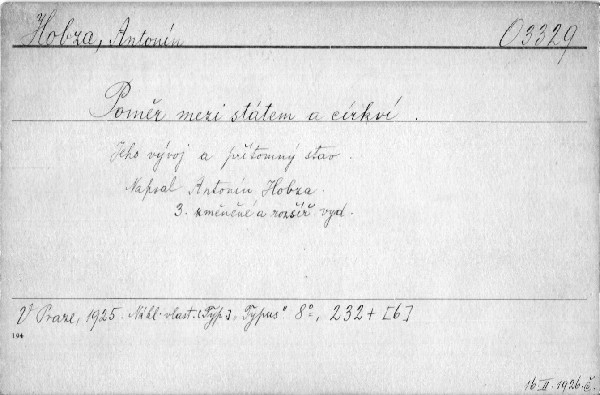 Hobza, Antonín O3329
Poměr mezi státem a církví.
Jeho vývoj a přítomný stav.
Napsal Antonín Hobza.
3. změněné a rozšíř. vyd.
V Praze, 1925. Nákl. vlast. [Typ.] „Typus" 8°, 232 + [6]
104
16.II.1926.č.